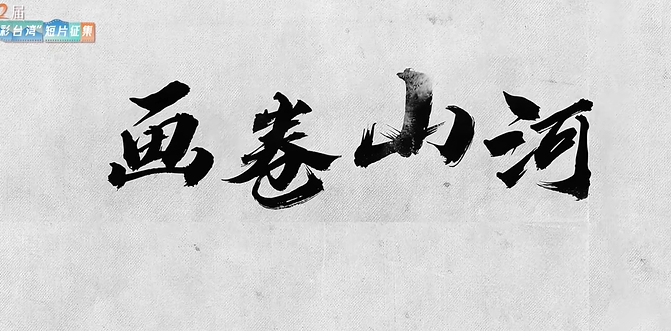 2届
彩台湾"短片征集
画卷山河